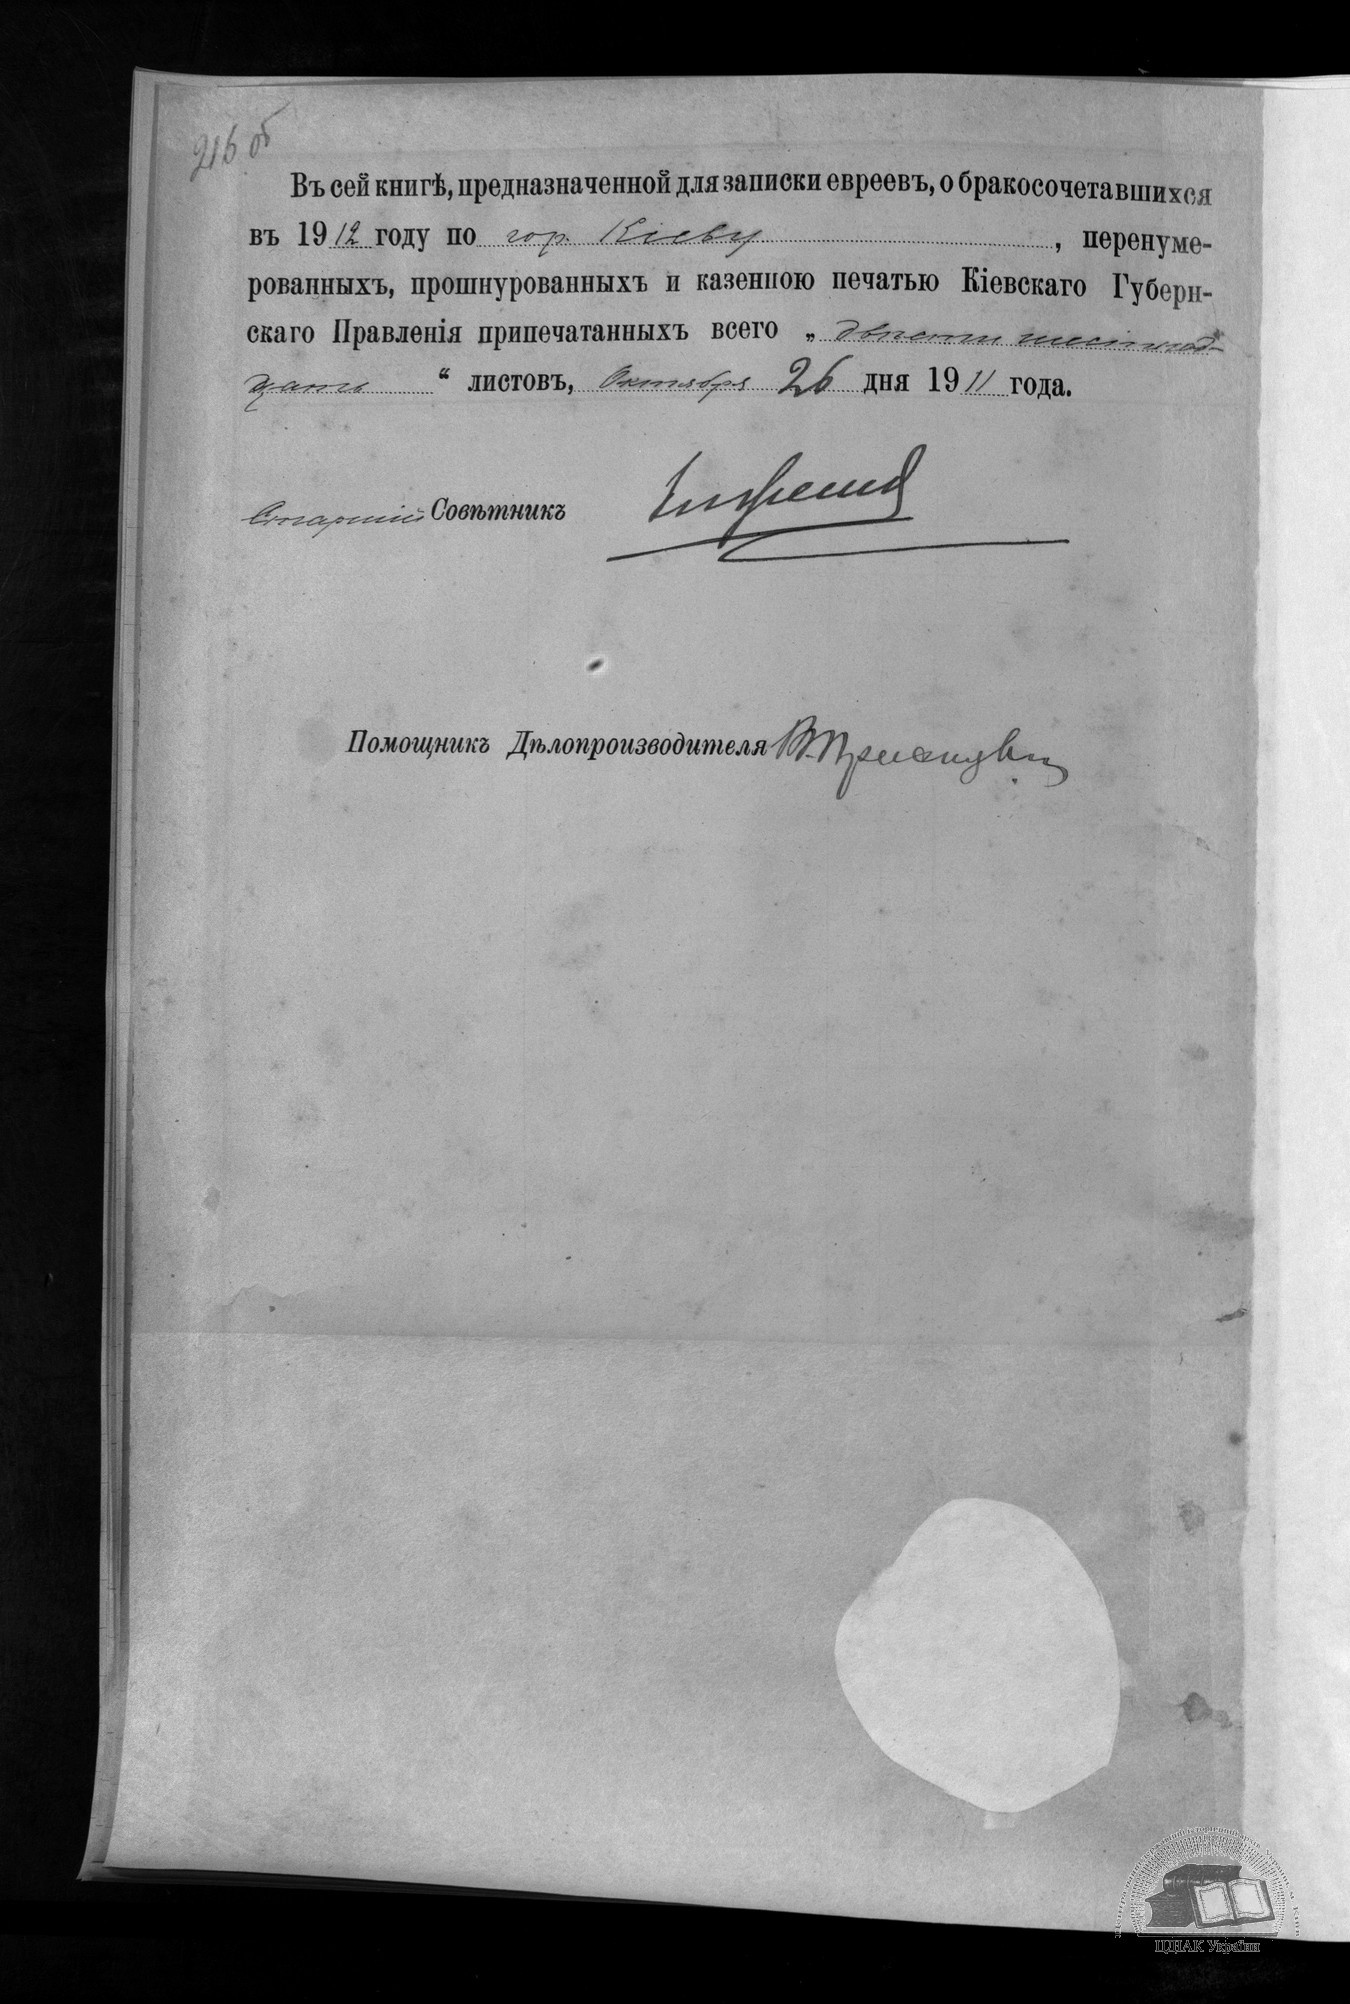 216 об
Въ сей книгѣ, предназначенной для записки евреевъ, о бракосочетавшихся
въ 1912 году по гор. Кіеву, перенуме-
рованныхъ, прошнурованныхъ и казенною печатью Кіевскаго Губерн-
скаго Правленія припечатанныхъ всего „двѣсти шестнад-
цать“ листовъ, Октября 26 дня 1911 года.
Старшій Совѣтникъ
Помощникъ Дѣлопроизводителя
ЦДІАК України